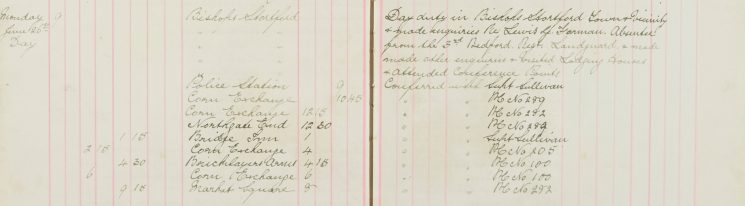 Monday 9 Bishops Stortford Day duty in Bishops Stortford Town & Vicinity
June 20th & made enquiries Re Lewis Hy Forman. Absentee
Day " from the 3rd Bedford Regt. Landguard, & made
" made other enquiries & Visited Lodging Houses
" & attended Conference Points
Police Station 9 Conferred with Supt Sullivan
Corn Exchange 10.45 " " PC No 289
Corn Exchange 12.15 " " PC No 292
Northgate End 12 30 " " PC No 289
1 15 Bridge Inn 1 " " Supt Sullivan
2 15 Corn Exchange 4 " " PC No 205
4 30 Bricklayers Arms 4 15 " " PC No 100
6 Corn Exchange 6 " " PC No 100
9 15 Market Square 8 " " PC No 292